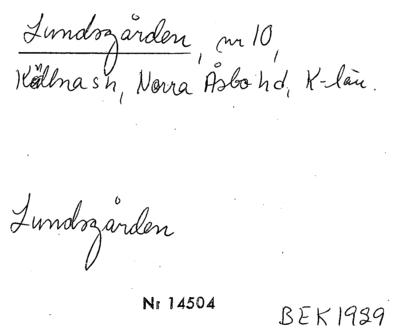 Lundsgården, nr 10,
Källna sh, Norra Åsbo hd, K-län.
Lundsgården
Nr 14504
BEK 1929